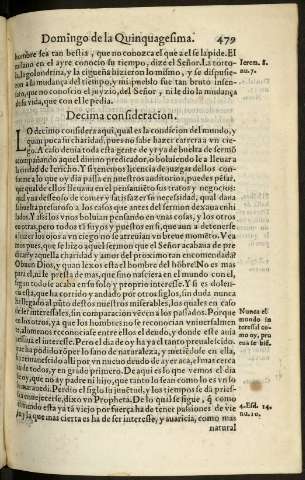 Domingo de la Quinquagesima. 479
hombre sea tan bestia, que no conozca el que a el se la pide. El
milano en el ayre conocio su tiempo, dize el Señor. La torto-
la, la golondrina, y la cigueña hizieron lo mismo, y se dispusie-
ron a la mudança del tiempo, y mi pueblo fue tan bruto insen-
sato, que no conosció el juyzio, del Señor, ni le dio la mudança
de su vida, que con el le pedia.
Ierem. 8.
nu. 7.
Decima consideracion.
LO decimo considera aqui, qual es la condicion del mundo, y
quan poca su charidad, pues no sabe hazer carrera a vn cie-
go. A caso denia toda esta gente de yr ya de buelta de sermõ
acompañando aquel diuino predicador, o boluiendole a lleuar a
la ciudad de Iericho. Y si tenemos licencia de juzgar dellos con-
forme a lo que oy dia passa en nuestros auditorios, puedes pẽsar,
que qual de ellos lleuaua en el pensamiẽto sus tratos y negocios:
qual yua desseoso de comer y satisfazer su necessidad, qual daria
buelta presuroso a los cosas que antes del sermon dexauan
Y assi los vnos boluian pensando en vnas cosas, y los otros
en otras, pero todos tã suyos y puestos en si, que aun a detenerse
a hazer los ojos a vn ciego no se atreuian vn breue momẽto. Vea
mos pues, que se hizo aquel sermon que el Señor acabaua de pre
dicar? y aquella charidad y amor del proximo tan encomendada?
O buen Dios, y quan lexos està el hombre del hõbre? No es mas
para el, ni le presta de mas, que sino naciera en el mundo con el,
segun todo se acaba en su solo y proprio interesse. Y si es dolen-
cia esta, que ha corrido y andado por otros siglos, sin duda nunca
ha llegado al pũto destos nuestros miserables, los quales en esto
de ser interessales, sin comparaciõ vẽcen a los passados. Porque
en los otros, ya que los hombres no se reconozian vniuersalmen
te, alomenos reconociase entre ellos el deudo, y donde este auia
Pero el dia de oy ha ya el tanto preualecido,
que ha podido rõper lo sano de naturaleza, y metidole en ella,
remanesido alli por vn nueuo deudo de ayer aca, el mas cerca
no de todos, y en grado primero. De aqui es lo que vemos el dia
de oy, que no ay padre ni hijo, que tanto lo sean como lo es vn in
teresado. Perdio el siglo su juuẽtud, y los tiempos se dã priessa
a enuejecerse, dixo vn Propheta. De lo qual se sigue, q̃ como
el mundo esta ya tã viejo por fuerça ha de tener passiones de vie
jo, y la que mas cierta es ha de ser interesse, y auaricia, como mas
natural
Nunca el
mundo in
teressal co-
mo oy, pro
eua se bis.
4. Esd. 14.
nu. 10.